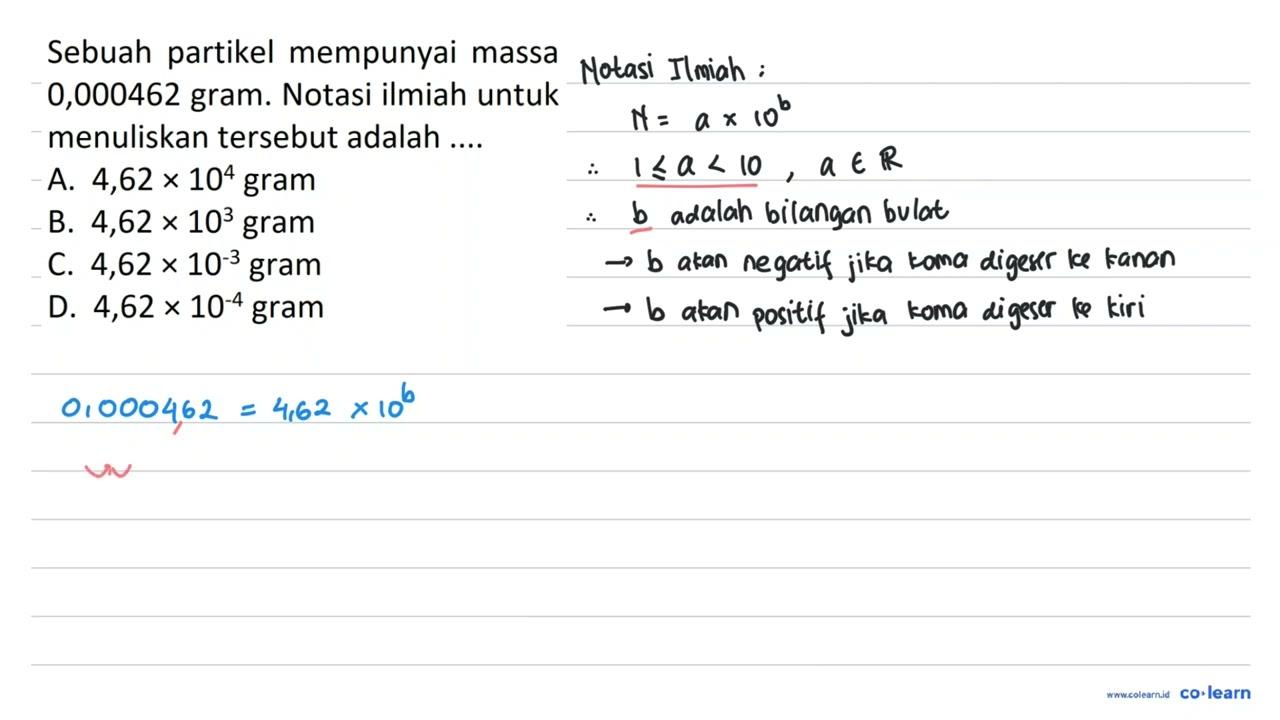 Sebuah partikel mempunyai massa
0,000462 gram. Notasi ilmiah untuk
menuliskan tersebut adalah ....
A. 4,62 × 10⁴ gram
B. 4,62 × 10³ gram
C. 4,62 × 10⁻³ gram
D. 4,62 × 10⁻⁴ gram
Notasi Ilmiah :
N = a × 10ᵇ
∴ 1 ≤ a < 10 , a ∈ ℝ
∴ b adalah bilangan bulat
→ b akan negatif jika koma digeser ke kanan
→ b akan positif jika koma digeser ke kiri
0,0004,62 = 4,62 × 10ᵇ
www.colearn.id co·learn